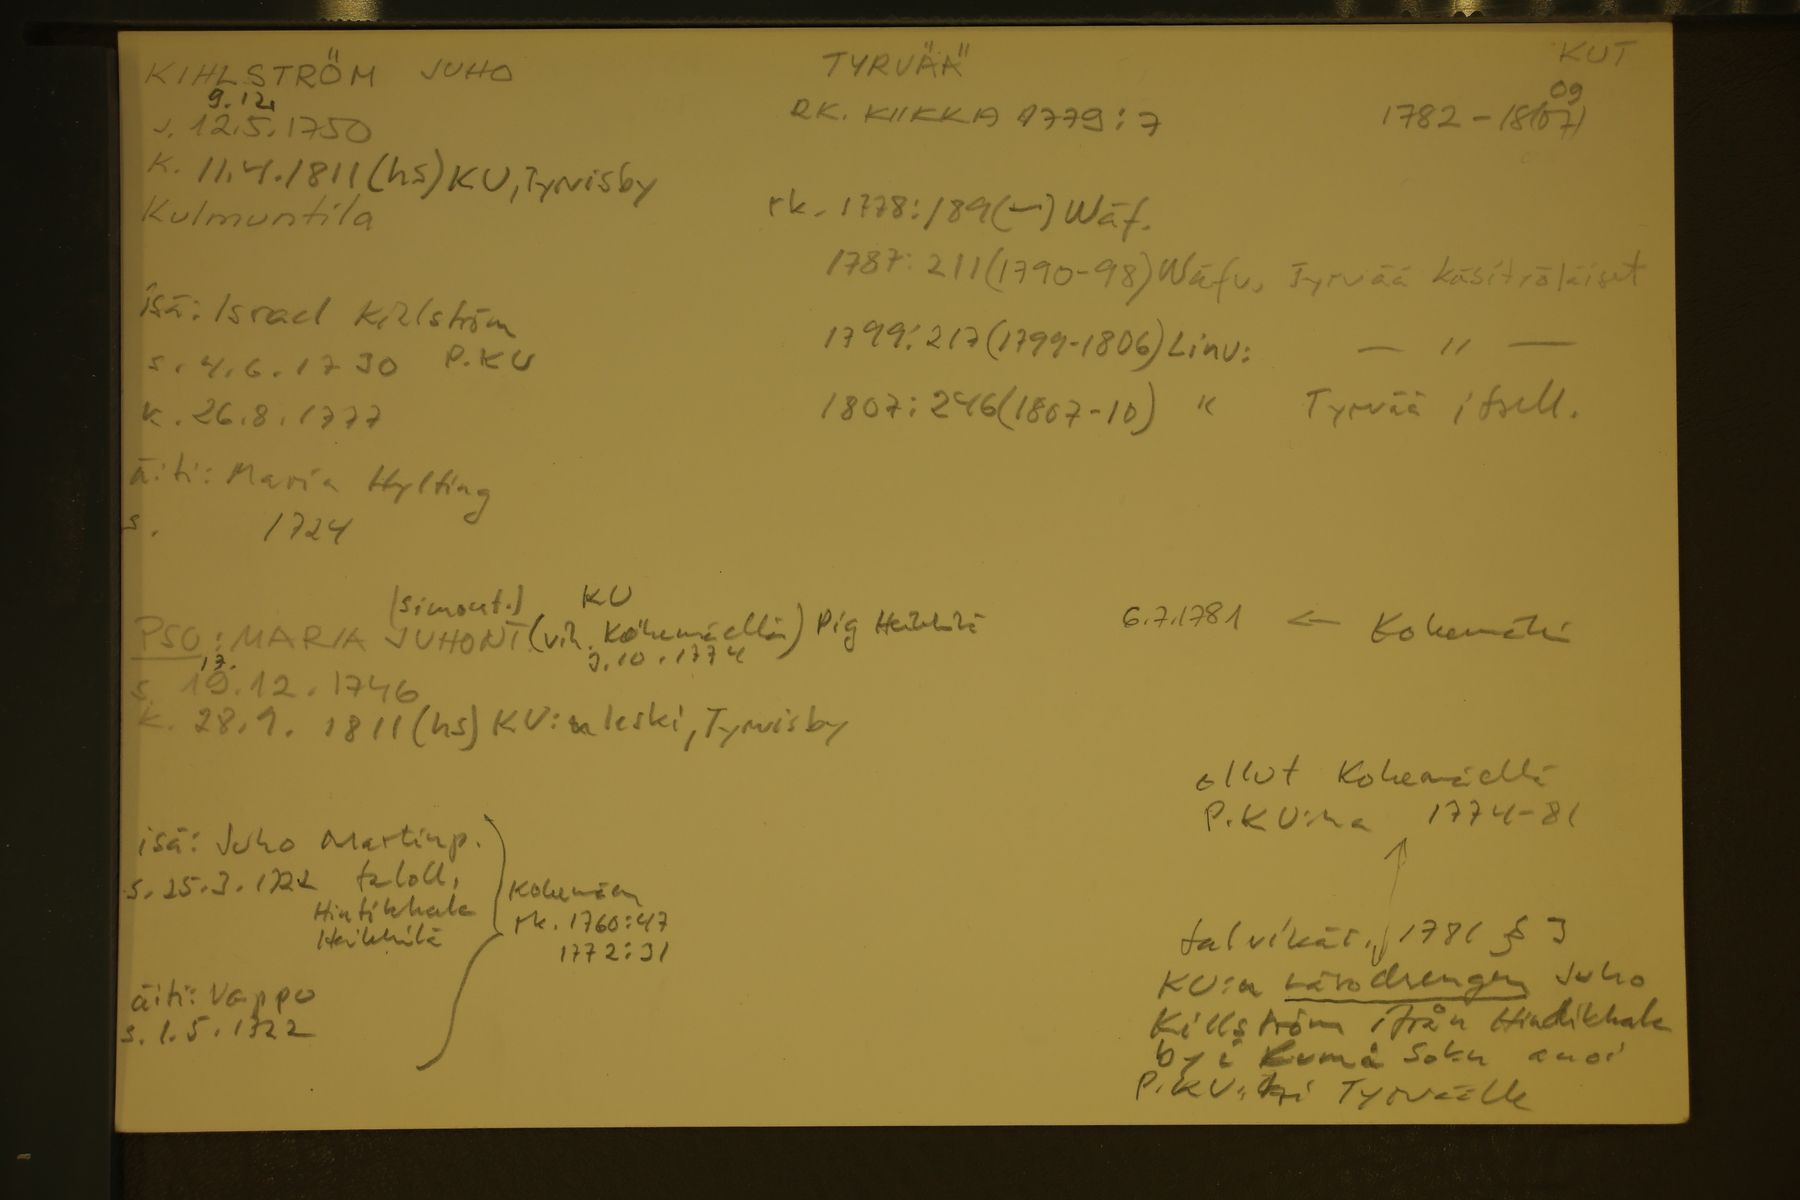 KIHLSTRÖM JUHO
9.12.
s. 12.5.1750
k. 11.4.1811 (hs) KU, Tyrvisby
Kulmuntila
isä: Israel Kihlström
s. 4.6.1730 P.KU
k. 26.8.1777
äiti: Maria Hylting
s. 1724
TYRVÄÄ
RK. KIIKKA 1779:7
rk. 1778:189 (—) Wäf.
1787: 211 (1790-98) Wäfv. Tyrvää käsityöläiset
1799: 217 (1799-1806) Linv: — " —
1807: 246 (1807-10) " Tyrvää itsell.
KUT
09
1782 - 18(07)
(Simont.) KU
PSO: MARIA JUHONT (vih. Kokemäellä) Pig Heikkilä
3.10.1774
17.
s. 19.12.1746
k. 28.9.1811 (hs) KU:n leski, Tyrvisby
6.7.1781 ← Kokemäki
isä: Juho Martinp.
s. 25.3.1722 taloll.
Hintikkala
Heikkilä
äiti: Vappu
s. 1.5.1722
Kokemäen
rk. 1760:47
1772:31
ollut Kokemäellä
P.KU:na 1774-81
talvikär. 1781 § 3
KU:n drengen Juho
Killström ifrån Hindikkala
by i Kumå Sokn anoi
P.KU:ksi Tyrväälle